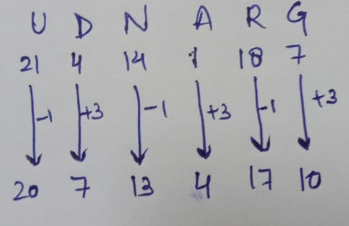 U D N A R G
21 4 14 1 18 7
-1 +3 -1 +3 -1 +3
20 7 13 4 17 10